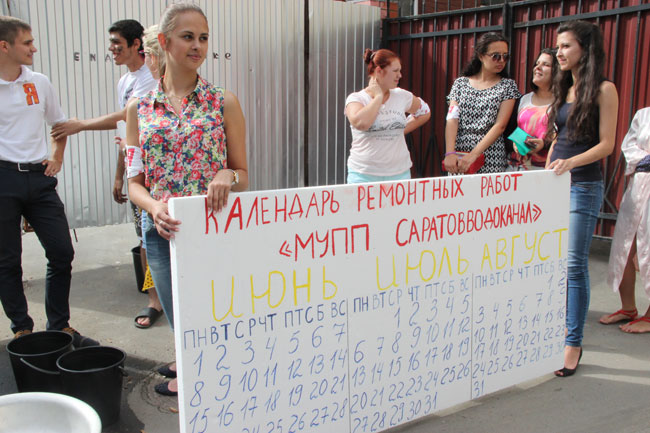 КАЛЕНДАРЬ РЕМОНТНЫХ РАБОТ
«МУПП САРАТОВВОДОКАНАЛ»
ИЮНЬ ИЮЛЬ АВГУСТ
ПН ВТ СР ЧТ ПТ СБ ВС
1 2 3 4 5 6 7
8 9 10 11 12 13 14
15 16 17 18 19 20 21
24 25 26 27 28
ПН ВТ СР ЧТ ПТ СБ ВС
1 2 3 4 5
6 7 8 9 10 11 12
13 14 15 16 17 18 19
20 21 22 23 24 25 26
27 28 29 30 31
ПН ВТ СР ЧТ ПТ СБ ВС
1 2
3 4 5 6 7 8 9
10 11 12 13 14 15 16
17 18 19 20 21 22 23
24 25 26 27 28 29 30
31
Я